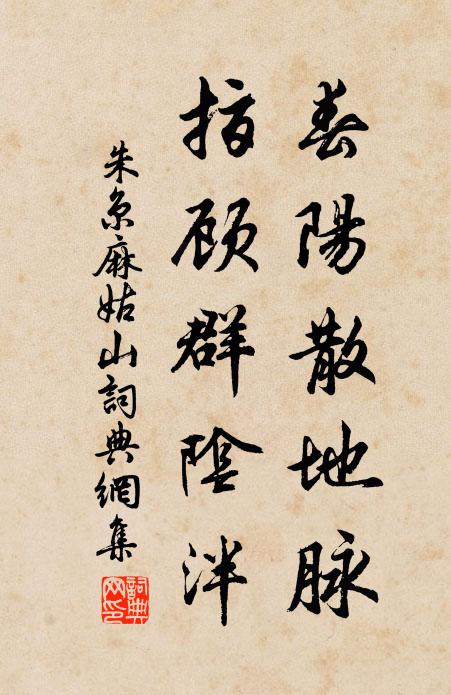 春陽散地脉
指顾群陰泮
朱京麻姑山詞典網集
詞典
网印